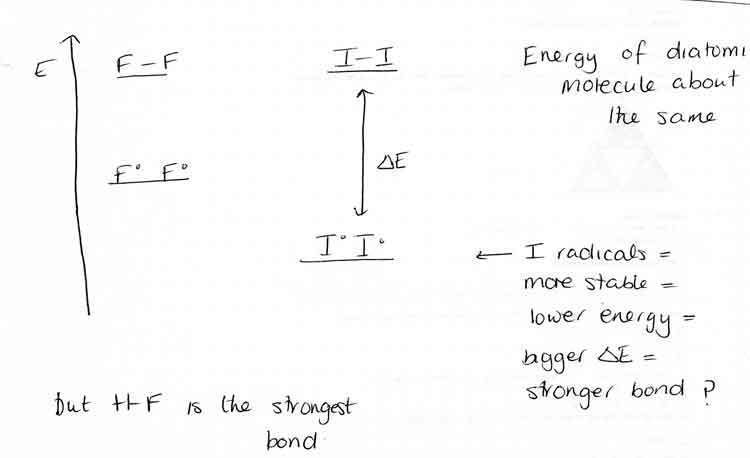 E
F-F
I-I
Energy of diatomi
molecule about
the same
F° F°
ΔE
I° I°
← I radicals =
more stable =
lower energy =
bigger ΔE =
stronger bond ?
but H-F is the strongest
bond